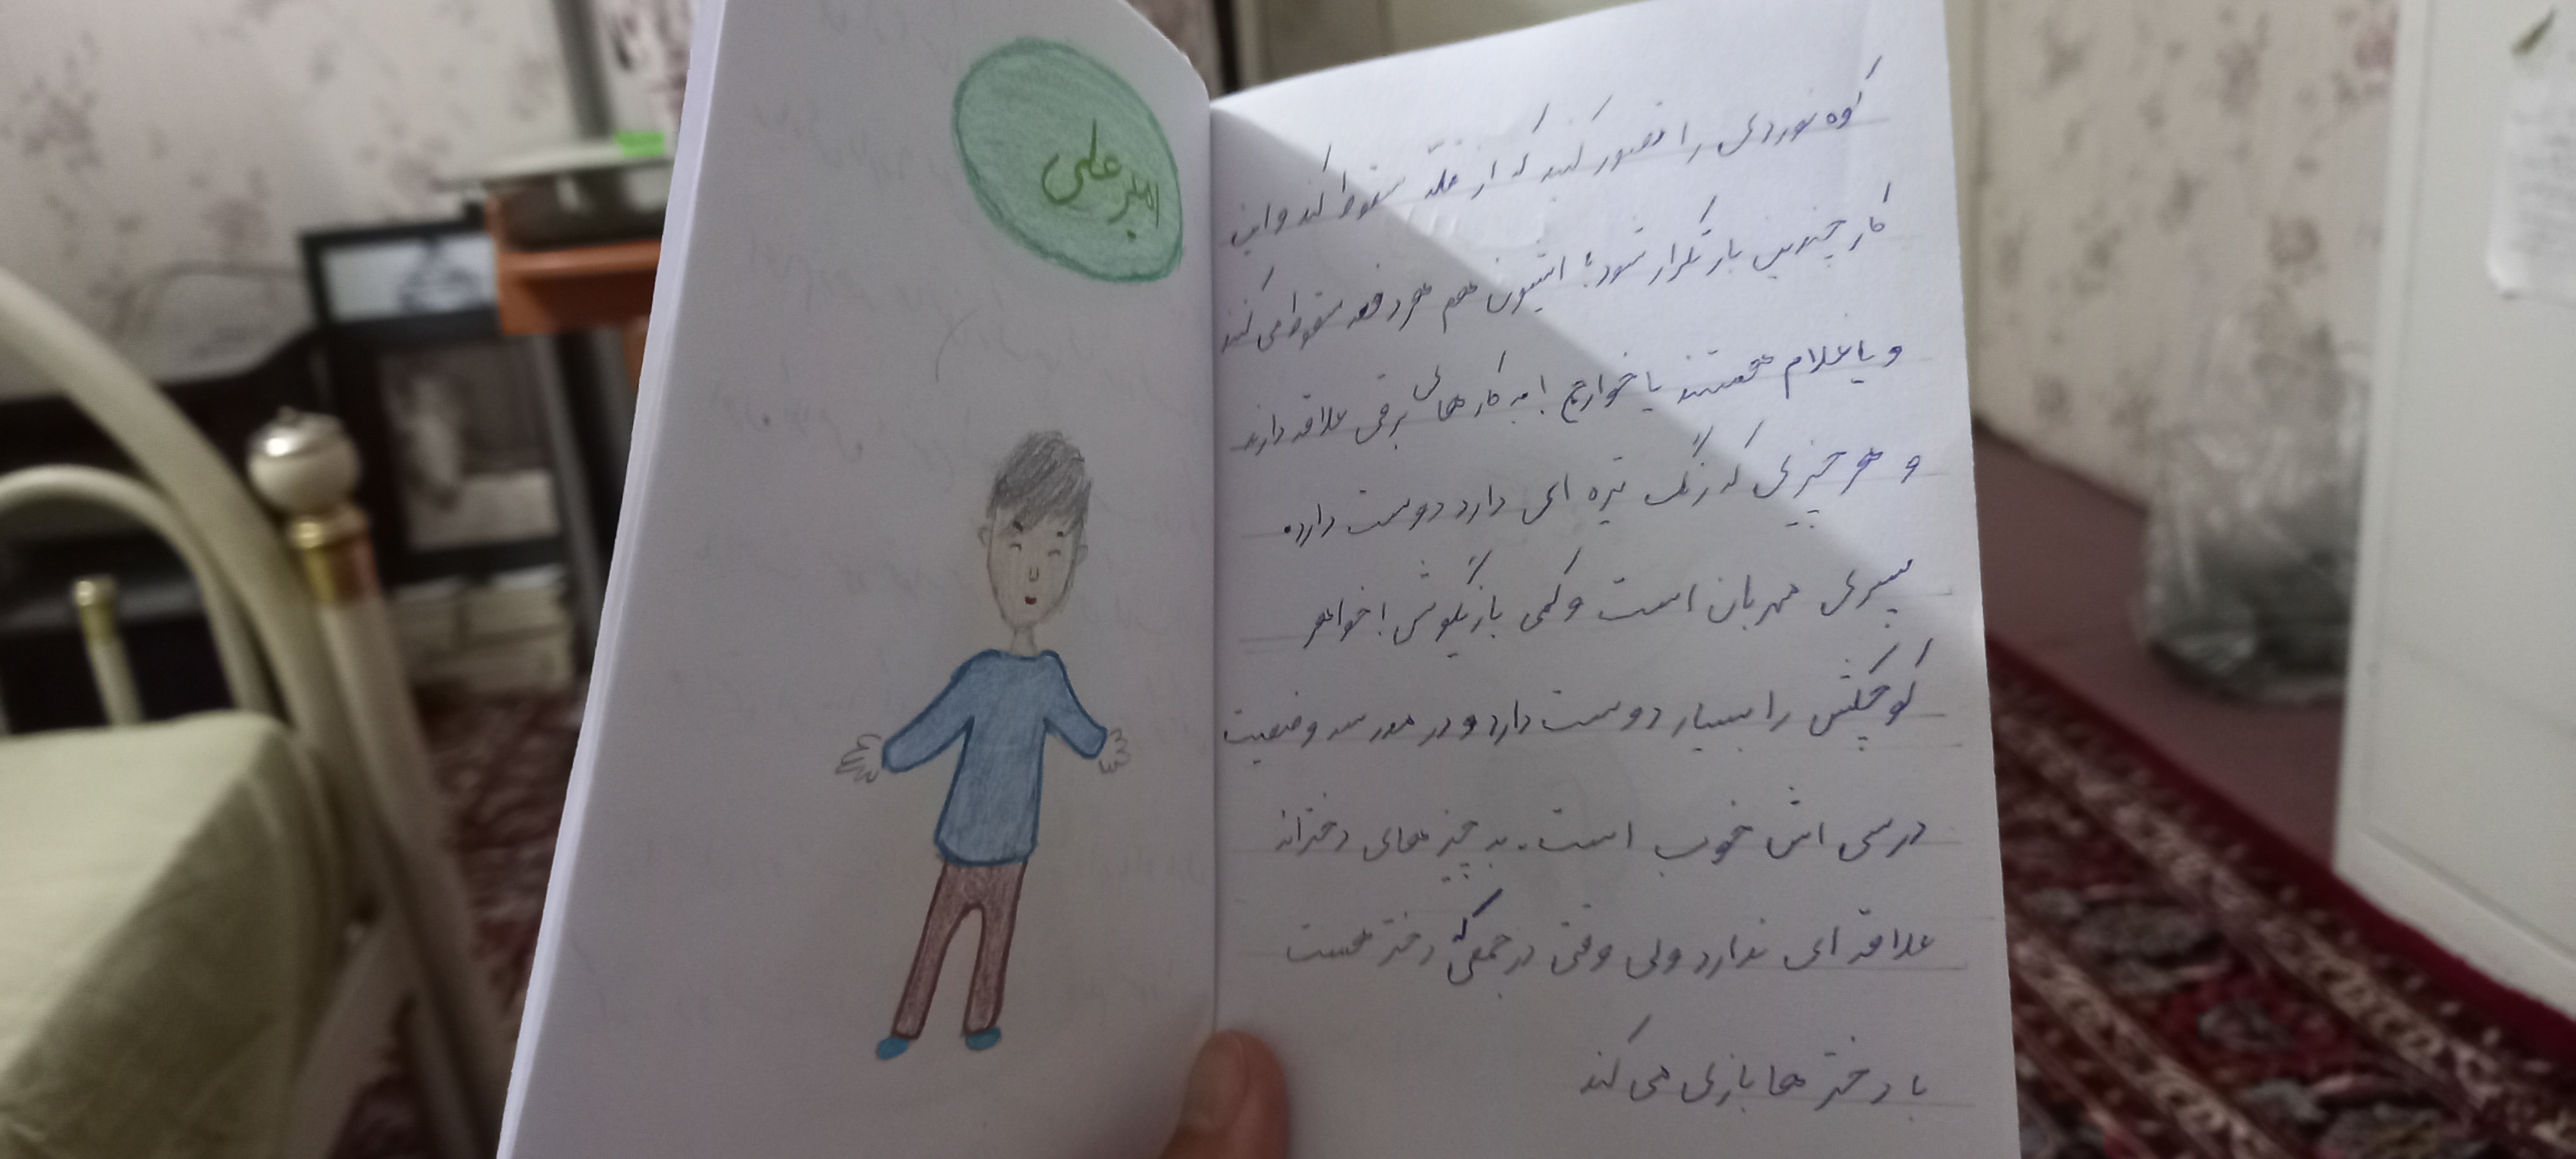 امیر علی
کوه نوردی را تصور کنید که از قله سقوط کند و این
کار چندین بار تکرار شود؛ ایشون هم هر دفعه سقوط می کند
و یا غلام هستند یا خواجه! به کارهای برقی علاقه دارند
و هر چیزی که رنگ تیره ای دارد دوست دارد.
پسری مهربان است و کمی بازیگوش! خواهر
کوچکش را بسیار دوست دارد و در مدرسه وضعیت
درسی اش خوب است. به چیزهای دخترانه
علاقه ای ندارد ولی وقتی در جمعی که دختر هست
با دختر ها بازی می کند